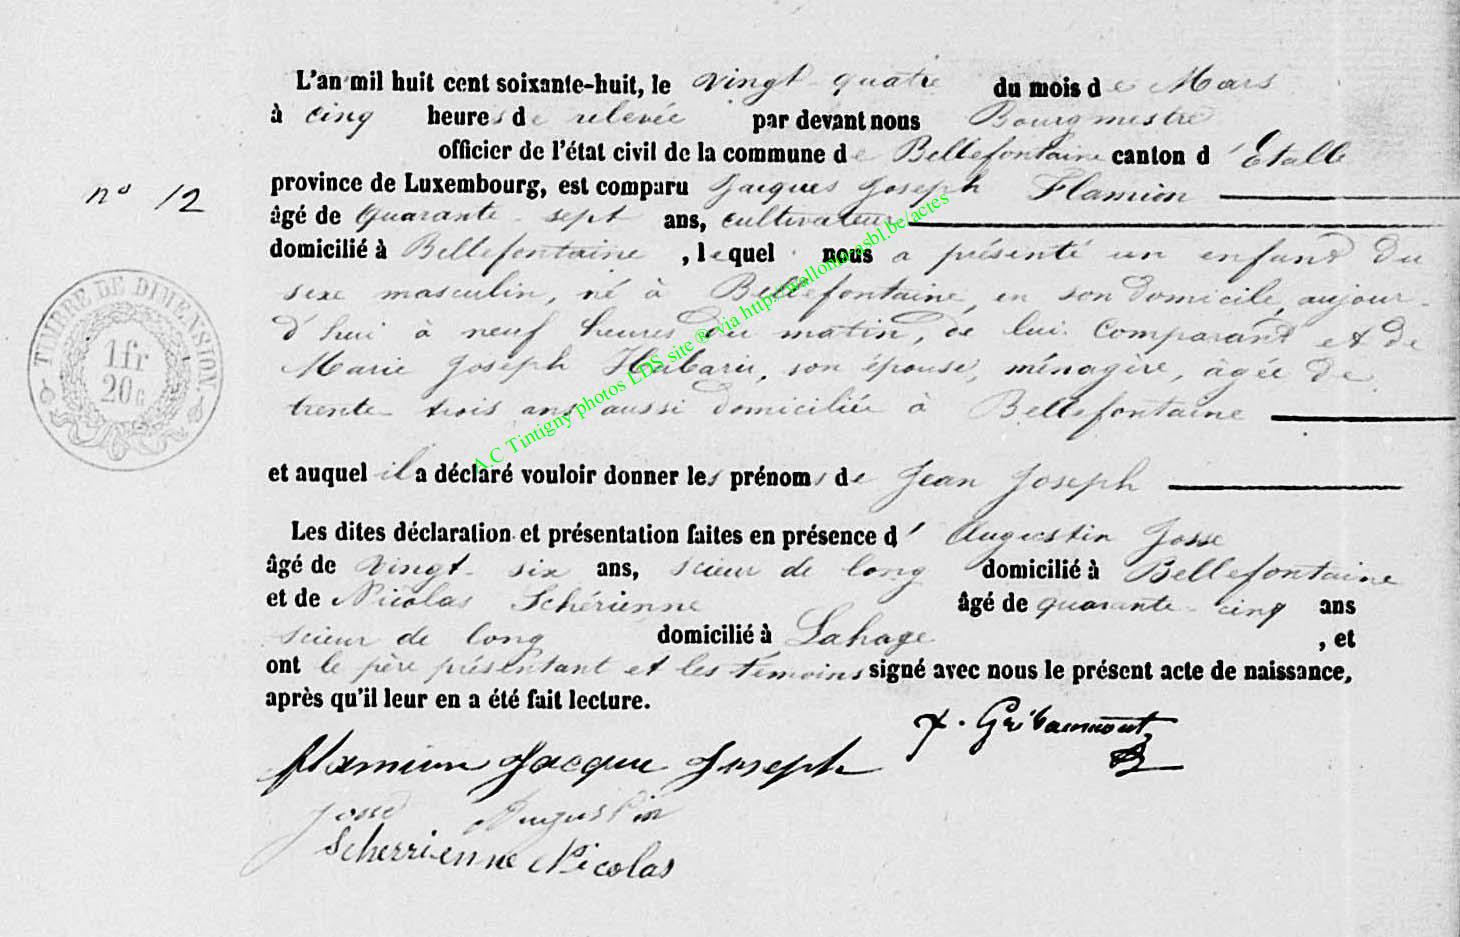 L'an mil huit cent soixante-huit, le vingt quatre du mois de Mars
à cinq heures de relevée par devant nous Bourgmestre
officier de l'état civil de la commune de Bellefontaine canton d'Etalle
n° 12
province de Luxembourg, est comparu Jacques Joseph Flamion
âgé de quarante-sept ans, cultivateur
domicilié à Bellefontaine, lequel nous a présenté un enfant du
sexe masculin, né à Bellefontaine, en son domicile, aujour-
d'hui à neuf heures du matin, de lui comparant et de
Marie Joseph Habaru, son épouse, ménagère, âgée de
trente trois ans aussi domiciliée à Bellefontaine
et auquel il a déclaré vouloir donner les prénoms de Jean Joseph
Les dites déclaration et présentation faites en présence d'Augustin Josse
âgé de vingt-six ans, scieur de long domicilié à Bellefontaine
et de Nicolas Schérienne âgé de quarante-cinq ans
scieur de long domicilié à Lahage, et
ont le père présentant et les témoins signé avec nous le présent acte de naissance,
après qu'il leur en a été fait lecture.
Gribaumont
flamion Jacque Joseph
Josse Augustin
Scherrienne Nicolas
TIMBRE DE DIMENSION.
1fr
20c
A.C Tintigny photos LDS site ® via http://wallonica.asbl.be/actes